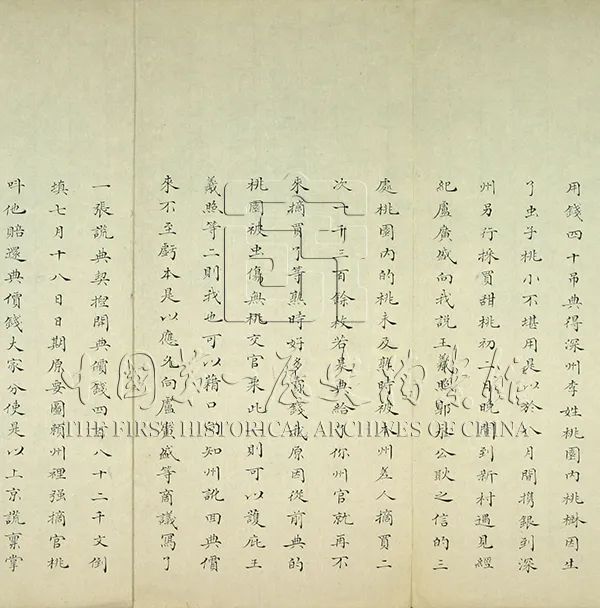 用錢四十吊典得深州李姓桃園內桃樹因生
了虫子桃小不堪用是以於八月間攜銀到深
州另行採買甜桃初二日晚間到新村遇見經
紀盧廣盛向我說王羲照鄭在公耿之信的三
處桃園內的桃未及熟時被本州差人摘買二
次共三百餘枚若果典給了你州官就再不
來摘買了等熟時好多賣錢我原因從前典的
桃園被虫傷無桃交官來此一則可以護庇王
羲照等二則我也可以藉口向知州訛回典價
來不至虧本是以應允向盧廣盛等商議寫了
一張謊典契揑開典價錢四百八十二千文倒
填七月十八日日期原要圖賴州裡强摘官桃
呌他賠還典價錢大家分使是以上京謊稟掌
中国第一历史档案馆
THE FIRST HISTORICAL ARCHIVES OF CHINA